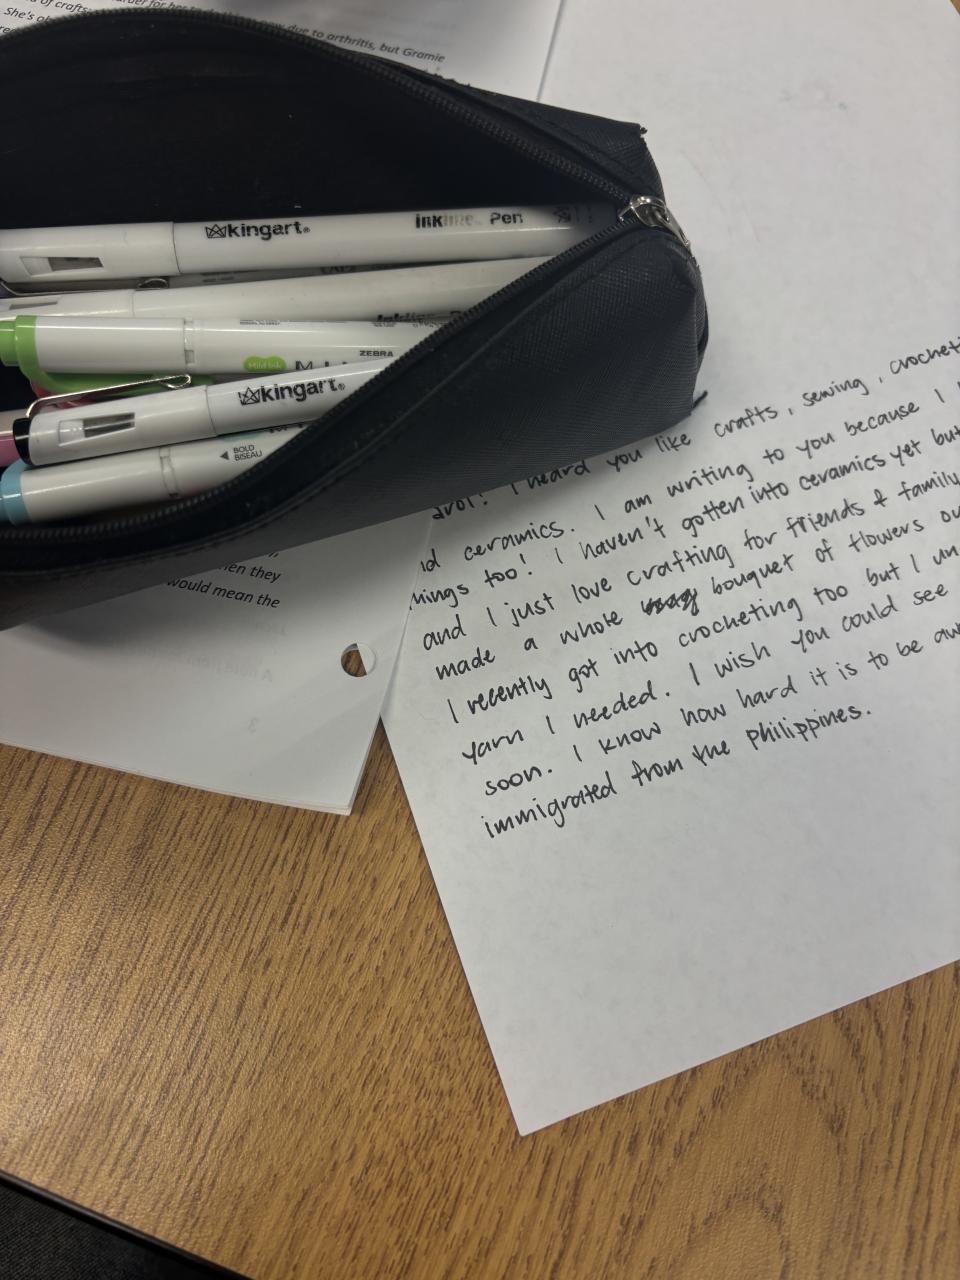 of crafts;
due to arthritis, but Gramie
She's
kingart®
inkline Pen
ZEBRA
Mild Ink
kingart®
BOLD
BISEAU
when they
would mean the
I heard you like crafts, sewing, crocheti
ceramics. I am writing to you because I
things too! I haven't gotten into ceramics yet but
and I just love crafting for friends & family
made a whole bouquet of flowers
I recently got into crocheting too but I
yarn I needed. I wish you could see
soon. I know how hard it is to be
immigrated from the Philippines.